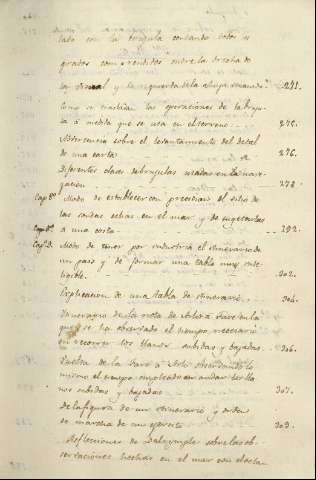 tado con la brujula contando todos los
grados comprendidos entre la derecha de
la visual y la izquierda de la aguja imanada. 271.
Como se traslada las operaciones de la bruju-
la á medida que se usa en el terreno 275.
Advertencia sobre el levantamiento del detal
de una carta 276.
Diferentes clases de brujulas usadas en la nave-
gacion 278
Cap. 8º Modo de establecer con precision el sitio de
las sondas echas en el mar y de sugetarlas
á una costa 292.
Cap. 9. Modo de tener por industria el itinerario de
un pais y de formar una tabla muy inte-
ligible. 302.
Explicacion de una tabla de itinerario 304.
Itinerario de la nota de Asti á Savona la
que se ha observado el tiempo necesario
en recorrer los llanos subidas y bajadas 306.
Vuelta de la Savona á Asti observando lo
mismo el tiempo empleado en andar los lla-
nos subidas y bajadas 307.
De la figura de un itinerario y orden
de marcha de un ejercito 309.
Reflecciones de Dalrymple sobre las ob-
servaciones hechas en el mar con el octan